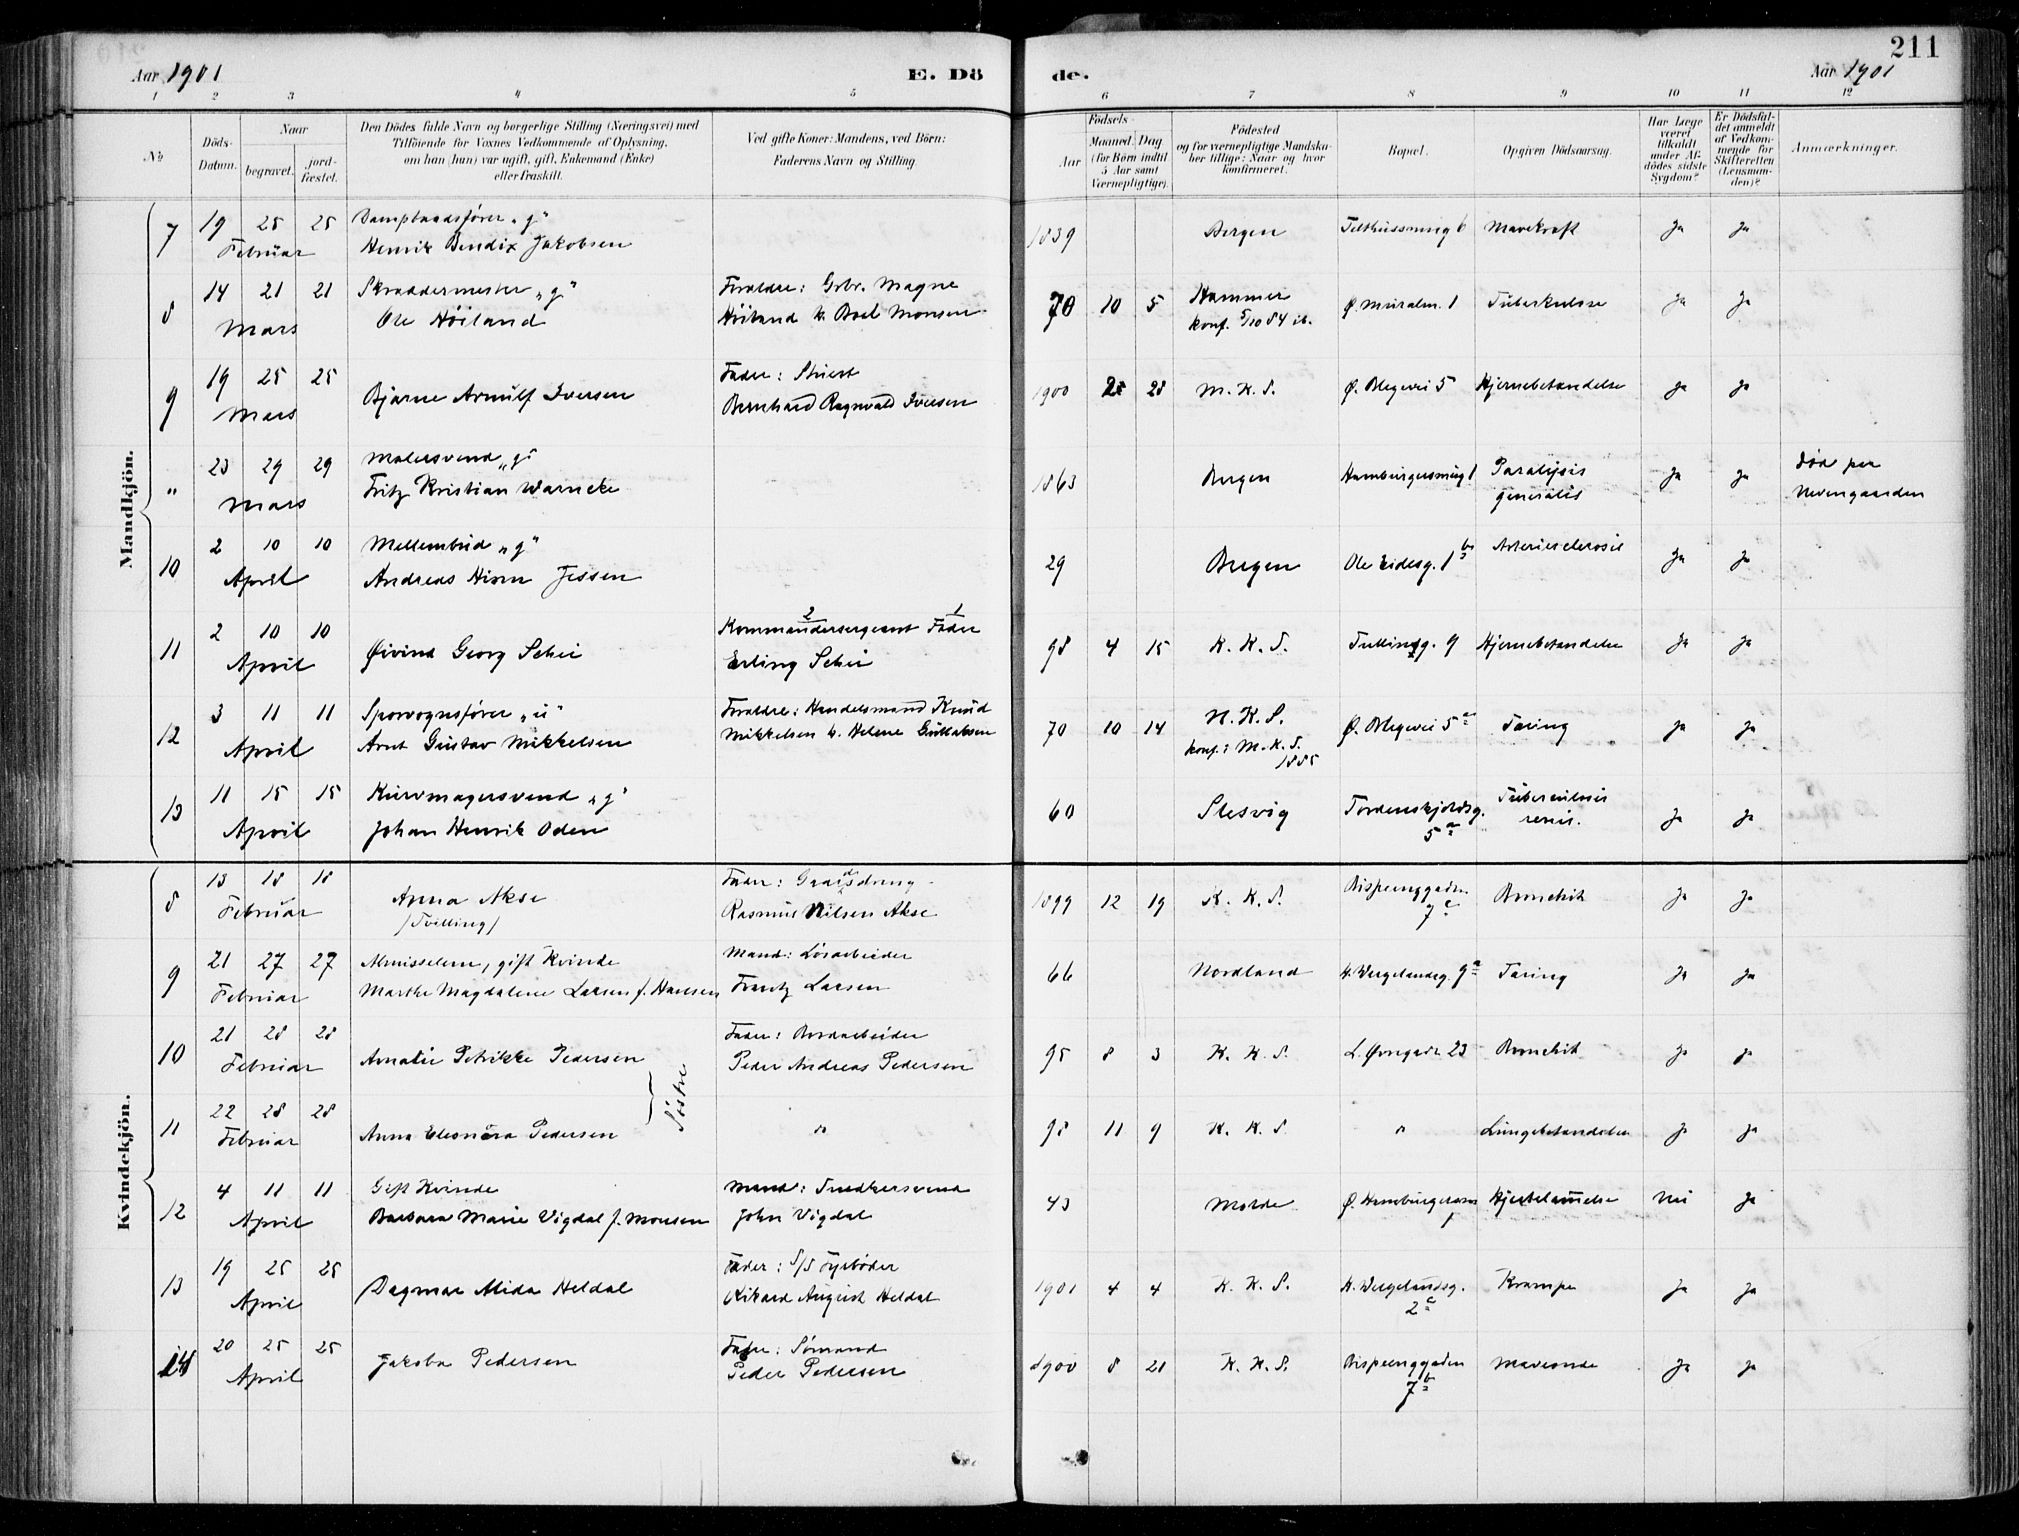 211
Aar 1901 E. Dö de. Aar 1901
1 2 3 4 5 6 7 8 9 10 11 12
№
Döds-Datum.
Naar
begravet.
jord-fæstet.
Den Dödes fulde Navn og borgerlige Stilling (Næringsvei) med
Tilföiende for Voxnes Vedkommende af Oplysning,
om han (hun) var ugift, gift, Enkemand (Enke)
eller fraskilt.
Ved gifte Koner: Mandens, ved Börn:
Faderens Navn og Stilling.
Födsels-
Aar
Maaned. Dag
(for Börn indtil
5 Aar samt
Værnepligtige).
Födested
og for værnepligtige Mandska-
ber tillige: Naar og hvor
konfirmeret.
Bopæl.
Opgiven Dödsaarsag.
Har Læge
været
tilkaldt
under Af-
dödes sidste
Sygdom?
Er Dödsfal-
det anmeldt
af Vedkom-
mende for
Skifteretten
(Lensman-
den)?
Anmærkninger.
Mandkjön.
7 19 25 25 Februar
Dampbaadsfører „g“
Henrik Bendix Jakobsen
1839 Bergen Tolthussmug 6 Mavekræft Ja Ja
8 14 21 21 Mars
Skræddermester „g“
Ole Höiland
Forældre: Grbr. Magne
Höiland & Boel Monsen
70 10 5 Hammer
konf. 5/10 84 ib.
Ø. Muralm. 1 Tuberkulose Ja Ja
9 19 25 25 Mars
Bjarne Arnulf Iversen
Fader: Stuert
Bernhard Ragnvald Iversen
1900 28 M. K. S. Ø. Blegevei 5 Hjernebetændelse Ja Ja
„ 23 29 29 Mars
Malersvend „g“
Fritz Kristian Warncke
1863 Bergen Hamburgersmug 1 Paralysis
generalis
Ja Ja død paa
Nevengaarden
10 2 10 10 April
Mellembud „g“
Andreas Hiorn Jessen
29 Bergen Ole Eidesg. 1 b Arteriesclerosis Ja Ja
11 2 10 10 April
Øivind Georg Schei
2 1
Kommandersergeant Fader
Erling Schei
98 4 15 K. K. S. Tullinsg. 9 Hjernebetændelse Ja Ja
12 3 11 11 April
Sporvognsfører „u“
Arnt Gustav Mikkelsen
Forældre: Handelsmand Knud
Mikkelsen & Helene Gullaksen
70 10 14 N. K. S.
konf: M. K. S.
1885
Ø. Blegevei 5 a Tæring Ja Ja
13 11 15 15 April
Kurvmagersvend „g“
Johan Henrik Oden
60 Slesvig Tordenskjoldsg.
5 a
Tuberculosis
renis.
Ja Ja
Kvindekjön.
8 13 18 18 Februar
Anna Akse
/Tvilling/
Fader: Gaardsdreng
Rasmus Nilsen Akse
1899 12 19 K. K. S. Bispeenggaden
7 c
Bronchit Ja Ja
9 21 27 27 Februar
Almisselem, gift Kvinde
Marthe Magdalene Larsen f. Hansen
Mand: Løsarbeider
Frantz Larsen
66 Nordland H. Wergelandsg. 9 a Tæring Ja Ja
10 21 28 28 Februar
Amalie Petrikke Pedersen
Fader: Bordarbeider
Peder Andreas Pedersen
95 8 3 K. K. S. L. Øvregade 23 Bronchit Ja Ja
Søstre
11 22 28 28 Februar
Anna Eleonora Pedersen
„
98 11 9 K. K. S „ Lungebetændelse Ja Ja
12 4 11 11 April
Gift Kvinde
Barbara Marie Vigdal f. Monsen
Mand: Snedkersvend
John Vigdal
43 Molde Hjertelammelse Nei Ja
13 19 25 25 April
Dagmar Alida Heldal
Fader: S/S Fyrbøder
Rikard August Heldal
1901 4 4 K. K. S. H. Wergelandsg.
2 c
Krampe Ja Ja
14 20 25 25 April
Jakoba Pedersen
Fader: Sömand
Peder Pedersen
1900 8 21 K. K. S. Bispeenggaden
7 b
Maveonde Ja Ja